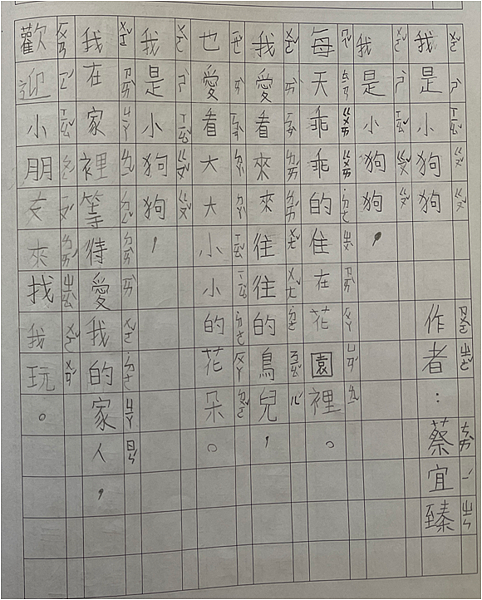 我是小狗狗 作者:蔡宜臻
我是小狗狗,
每天乖乖的住在花園裡。
我愛看來來往往的鳥兒,
也愛看大大小小的花朵。
我是小狗狗,
我在家裡等待愛我的家人,
歡迎小朋友來找我玩。